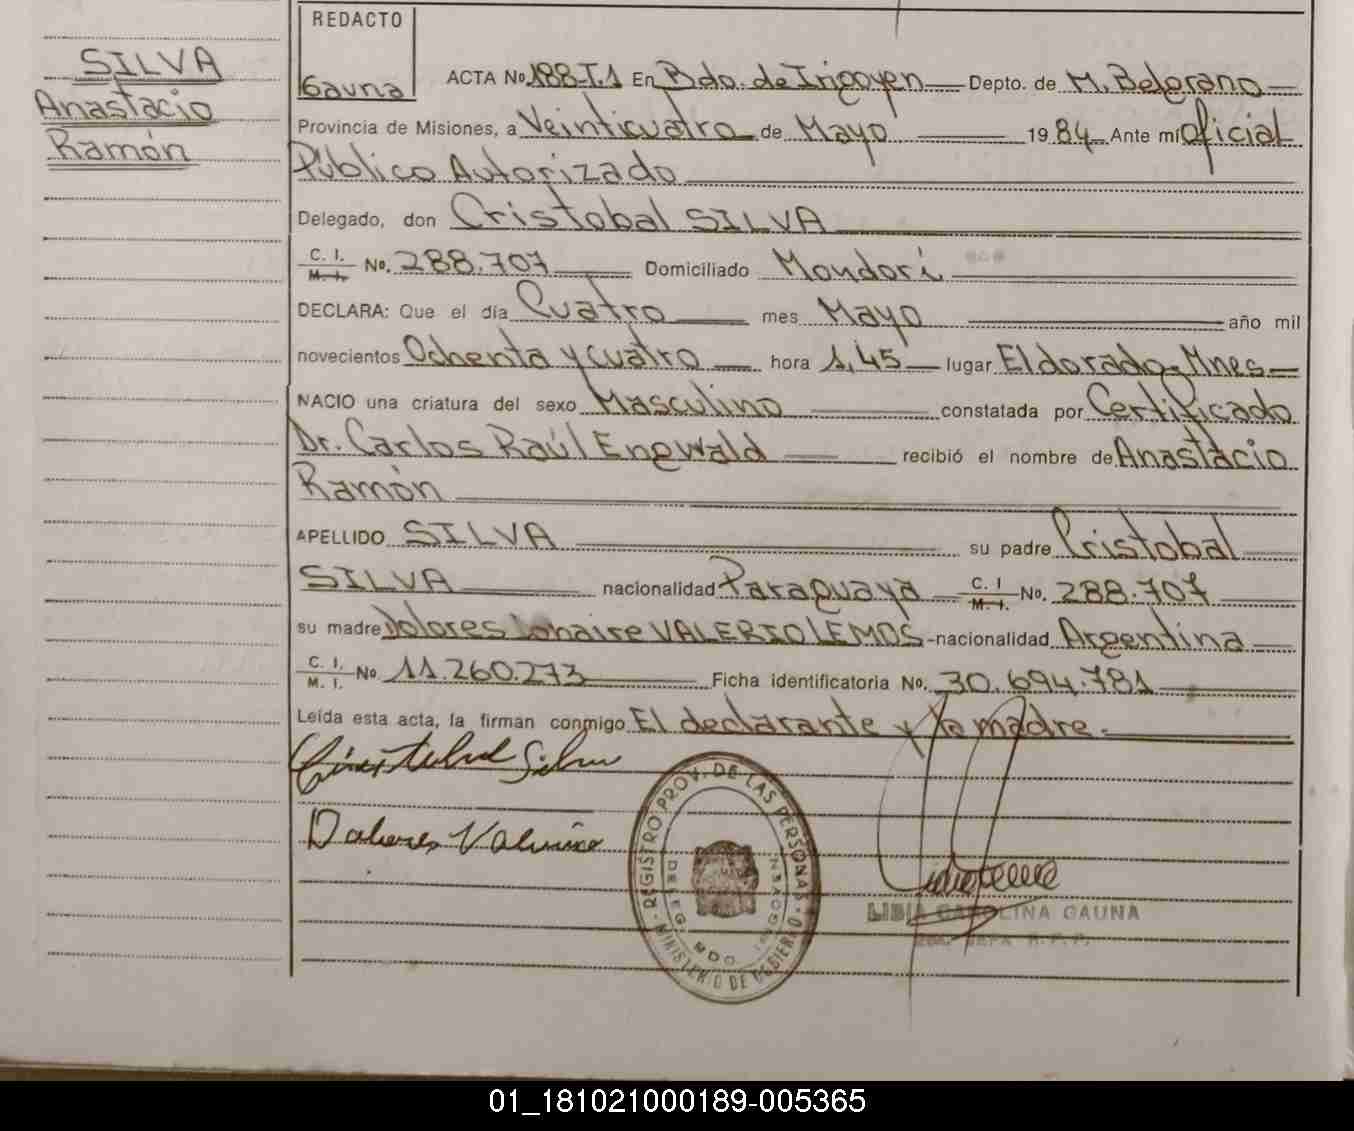 SILVA
Anastacio
Ramón
REDACTO
Gauna
ACTA No 188-T.1 En Bdo. de Irigoyen Depto. de M. Belgrano
Provincia de Misiones, a Veinticuatro de Mayo 1984 Ante mi oficial
Público Autorizado
Delegado, don Cristobal SILVA
C. I.
M. I. No. 288.707 Domiciliado Mondorí
DECLARA: Que el día Cuatro mes Mayo año mil
novecientos Ochenta y cuatro hora 1,45 lugar Eldorado-Mnes
NACIO una criatura del sexo Masculino constatada por Certificado
Dr. Carlos Raúl Enewald recibió el nombre de Anastacio
Ramón
APELLIDO SILVA su padre Cristobal
SILVA nacionalidad Paraguaya C. I
M. I. No. 288.707
su madre Dolores VALERIO LEMOS - nacionalidad Argentina
C. I.
M. I. No 11.260.273 Ficha identificatoria No. 30.694.781
Leída esta acta, la firman conmigo El declarante y la madre.
Cristobal Silva
Dolores
REGISTRO PROV. DE LAS PERSONAS
MINISTERIO DE GOBIERNO
DELEG. BDO. IRIGOYEN
LIBIA CAROLINA GAUNA
JEFA R.P.P.
01_181021000189-005365